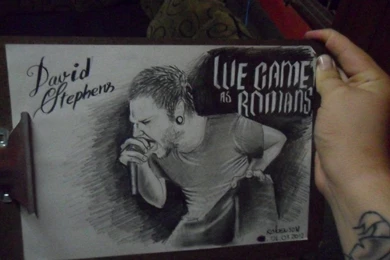 David
Stephens
WE CAME
AS
ROMANS